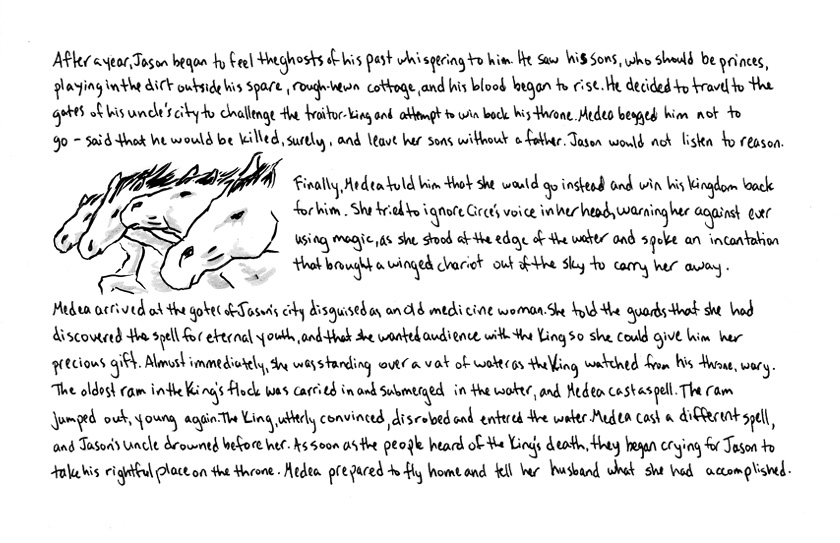 After a year, Jason began to feel the ghosts of his past whispering to him. He saw his sons, who should be princes,
playing in the dirt outside his spare, rough-hewn cottage, and his blood began to rise. He decided to travel to the
gates of his uncle's city to challenge the traitor-king and attempt to win back his throne. Medea begged him not to
go - said that he would be killed, surely, and leave her sons without a father. Jason would not listen to reason.
Finally, Medea told him that she would go instead and win his kingdom back
for him. She tried to ignore Circe's voice in her head, warning her against ever
using magic, as she stood at the edge of the water and spoke an incantation
that brought a winged chariot out of the sky to carry her away.
Medea arrived at the gates of Jason's city disguised as an old medicine woman. She told the guards that she had
discovered the spell for eternal youth, and that she wanted audience with the King so she could give him her
precious gift. Almost immediately, she was standing over a vat of water as the King watched from his throne, wary.
The oldest ram in the King's flock was carried in and submerged in the water, and Medea cast a spell. The ram
jumped out, young again. The King, utterly convinced, disrobed and entered the water. Medea cast a different spell,
and Jason's uncle drowned before her. As soon as the people heard of the King's death, they began crying for Jason to
take his rightful place on the throne. Medea prepared to fly home and tell her husband what she had accomplished.